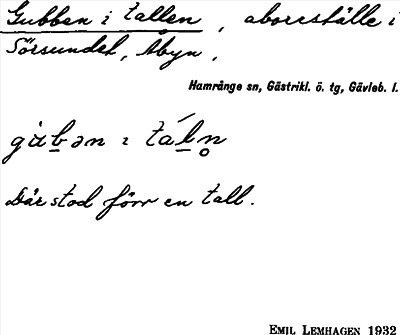 Gubben i tallen, aborrställe i
Sörsundet, Åbyn.
Hamrånge sn, Gästrikl. ö. tg, Gävleb. l.
gàb̲ən ɩ tál̲n̥
Där stod förr en tall.
EMIL LEMHAGEN 1932